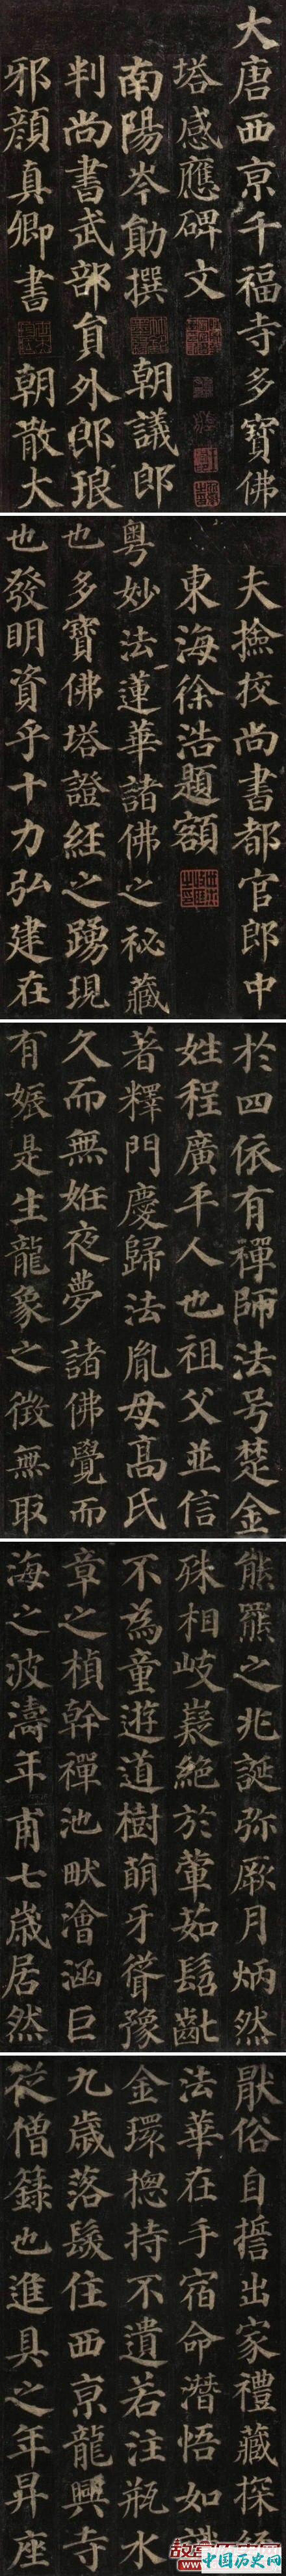 大唐西京千福寺多寶佛
塔感應碑文
南陽岑勛撰 朝議郎
判尚書武部員外郎琅
邪顏真卿書 朝散大
夫撿挍尚書都官郎中
東海徐浩題額
粵妙法蓮華諸佛之祕藏
也多寶佛塔證經之踴現
也發明資乎十力弘建在
於四依有禪師法号楚金
姓程廣平人也祖父並信
著釋門慶歸法胤母高氏
久而無姙夜夢諸佛覺而
有娠是生龍象之徵無取
熊羆之兆誕弥厥月炳然
殊相岐嶷絕於葷茹髫齔
不為童遊道樹萌牙聳豫
章之楨幹禪池畎澮涵巨
海之波濤年甫七歲居然
猒俗自誓出家禮藏探
法華在手宿命潛悟如識
金環揔持不遺若注瓶水
九歲落髮住西京龍興寺
從僧籙也進具之年昇座
中国历史网